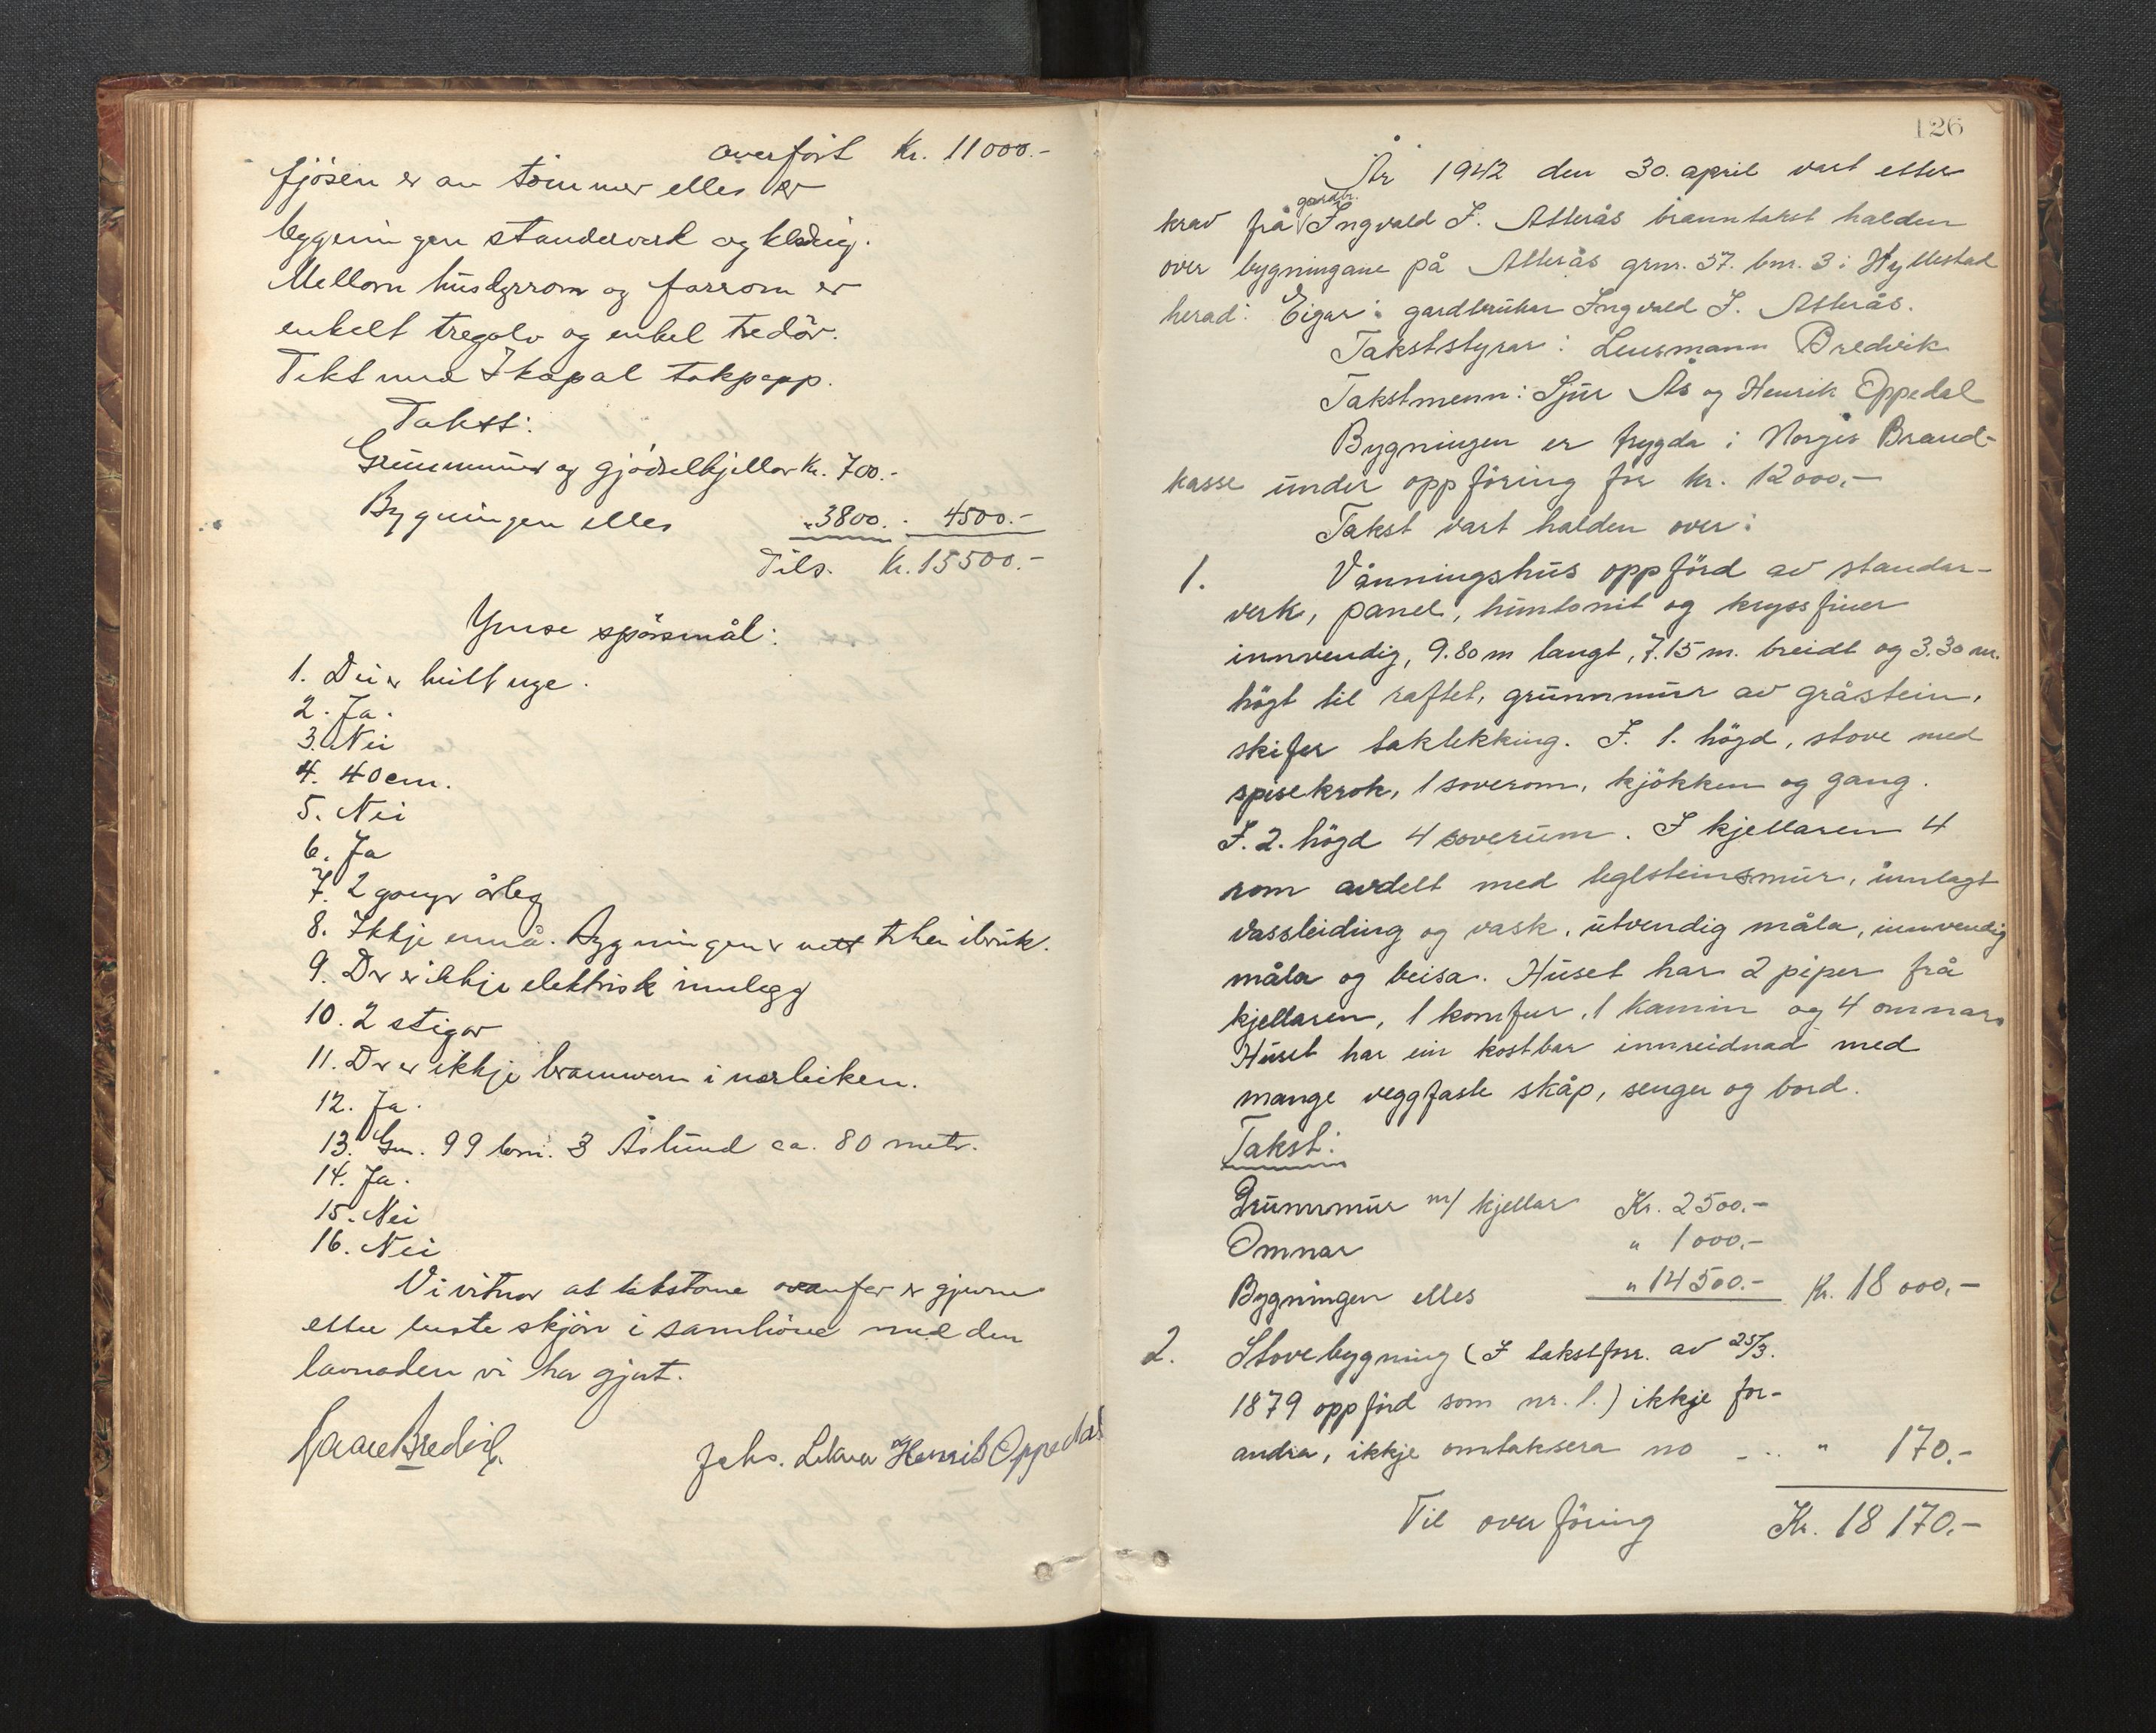 overført Kr. 11000.-
fjösen er av tömmer elles er
bygningen standerverk og kledning.
Mellom husdyrrom og forrom er
enkelt tregolv og enkel tredör.
Tekt med Ikopal takpapp.
Takst:
Grunnmur og gjödselkjellar Kr. 700.-
Bygningen elles " 3800.- 4500.-
Tils. Kr. 15500.-
Ymse spörsmål:
1. Dei er heilt nye.
2. Ja.
3. Nei
4. 40 cm.
5. Nei
6. Ja
7. 2 gonger årleg
8. Ikkje ennå. Bygningen er nett teken i bruk.
9. Der er ikkje elektrisk innlegg
10. 2 stigar
11. Der er ikkje brannvern i nærleiken.
12. Ja.
13. Gnr. 99 bnr. 3 Åslund ca. 80 meter.
14. Ja.
15. Nei
16. Nei
Vi vitnar at takstane ovanfor er gjevne
etter beste skjön i samhöve med den
lovnaden vi har gjevt.
Bredvik
Johs. Henrik Oppedal
126
År 1942 den 30. april vart etter
gardbr.
krav frå Ingvald I. Atterås branntakst halden
over bygningane på Atterås grnr. 37. bnr. 3 i Hyllestad
herad: Eigar: gardbrukar Ingvald I. Atterås.
Takststyrar: Lensmann Bredvik
Takstmenn: Sjur Ås og Henrik Oppedal
Bygningen er trygda i Norges Brand-
kasse under oppföring for kr. 12000,-
Takst vart halden over:
1. Våningshus oppförd av standar-
verk, panel, huntonit og kryssfiner
innvendig, 9.80 m langt, 7.15 m. breidt og 3.30 m.
högt til raftet, grunnmur av gråstein,
skifer taktekking. I. 1. högd, stove med
spisekrok, 1 soverom, kjökken og gang.
I. 2. högd 4 soverum. I kjellaren 4
rom avdelt med teglsteinsmur, innlagt
vassleiding og vask, utvendig måla, innvendig
måla og beisa. Huset har 2 piper frå
kjellaren, 1 komfur, 1 kamin og 4 omnar.
Huset har ein kostbar innreidnad med
mange veggfaste skåp, senger og bord.
Takst:
Grunnmur m/ kjellar Kr. 2500.-
Omnar " 1000.-
Bygningen elles " 14500.- Kr. 18 000,-
2. Stovebygning (I takstforr. av 25/3.
1879 oppförd som nr. 1.) ikkje for-
andra, ikkje omtaksera no - .. " 170.-
Til overföring Kr. 18 170.-